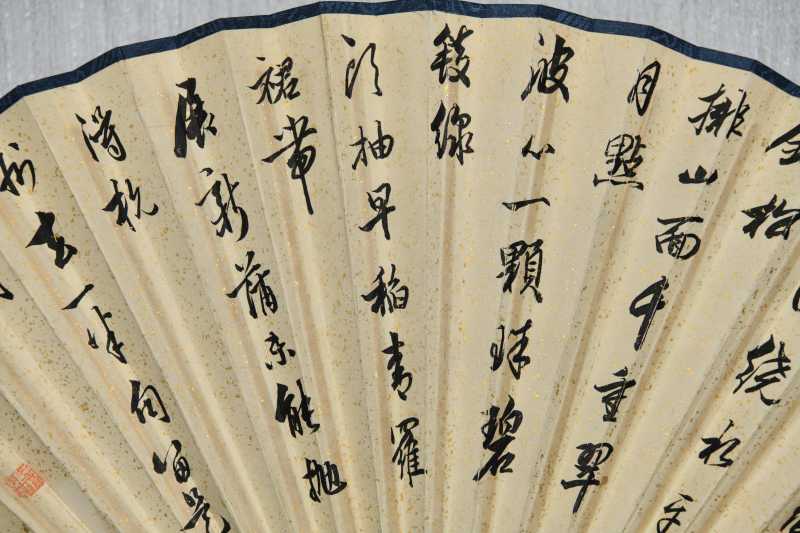 繞水平
鋪松
排山面千重翠
月點
波心一顆珠碧
毯線
頭抽早稻青羅
裙帶
展新蒲未能抛
得杭
州去一半勾留是